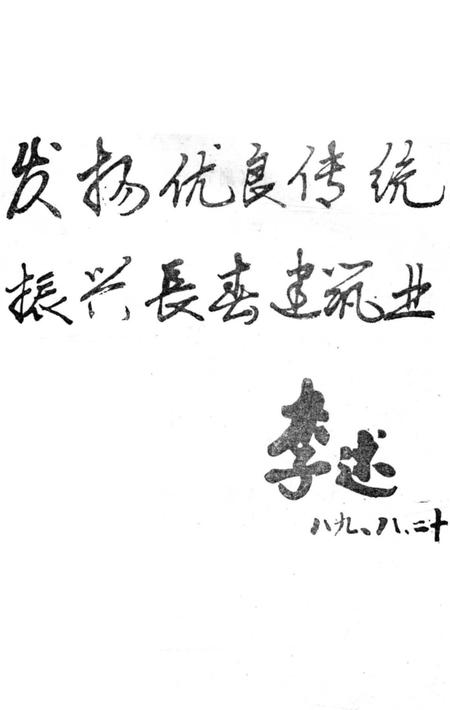 发扬优良传统
振兴長春建筑业
李述
八九、八、二十